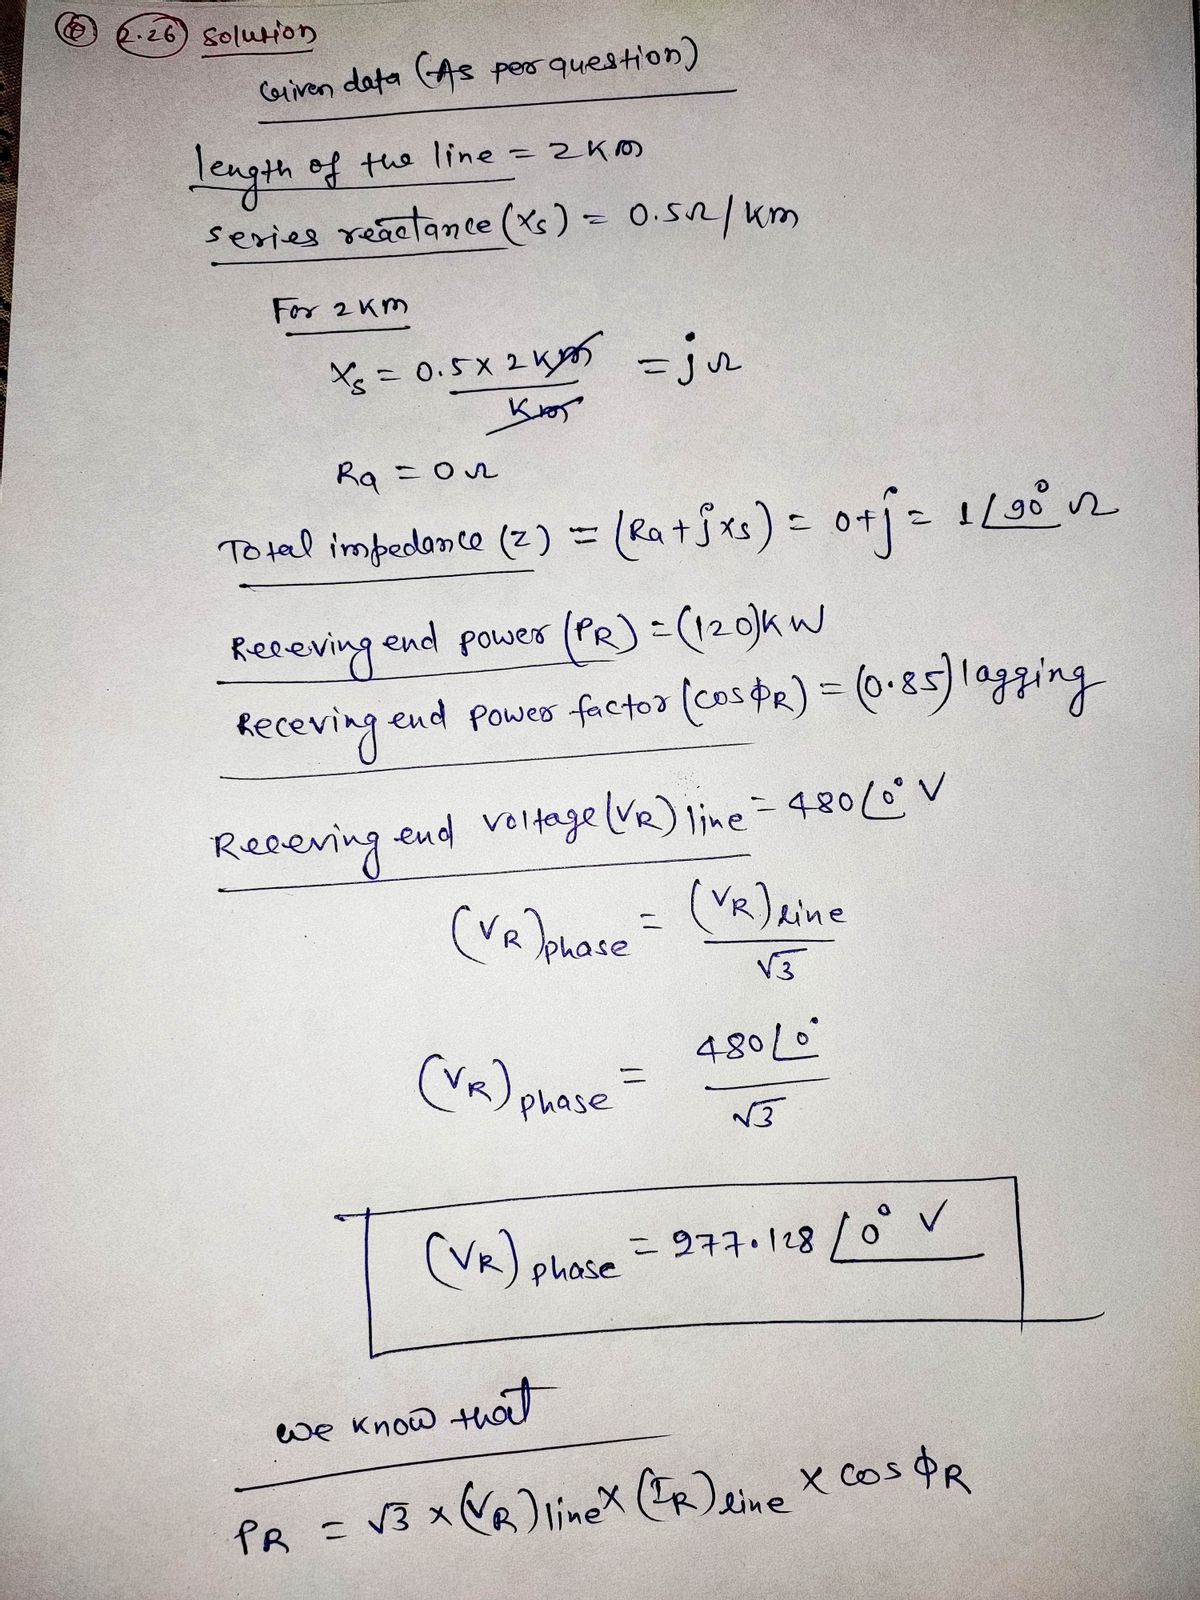 ⑥ 2.26 Solution
Given data (As per question)
length of the line = 2 Km
series reactance (Xs) = 0.5Ω/Km
For 2 Km
Xs = 0.5 × 2 Km / Km = j Ω
Ra = 0 Ω
Total impedance (Z) = (Ra + j Xs) = 0 + j = 1∠90° Ω
Receving end power (PR) = (120)KW
Receving end power factor (cos ΦR) = (0.85) lagging
Receving end voltage (VR) line = 480∠0° V
(VR)phase = (VR)line / √3
(VR)phase = 480∠0° / √3
(VR)phase = 277.128∠0° V
we know that
PR = √3 × (VR)line × (IR)line × cos ΦR